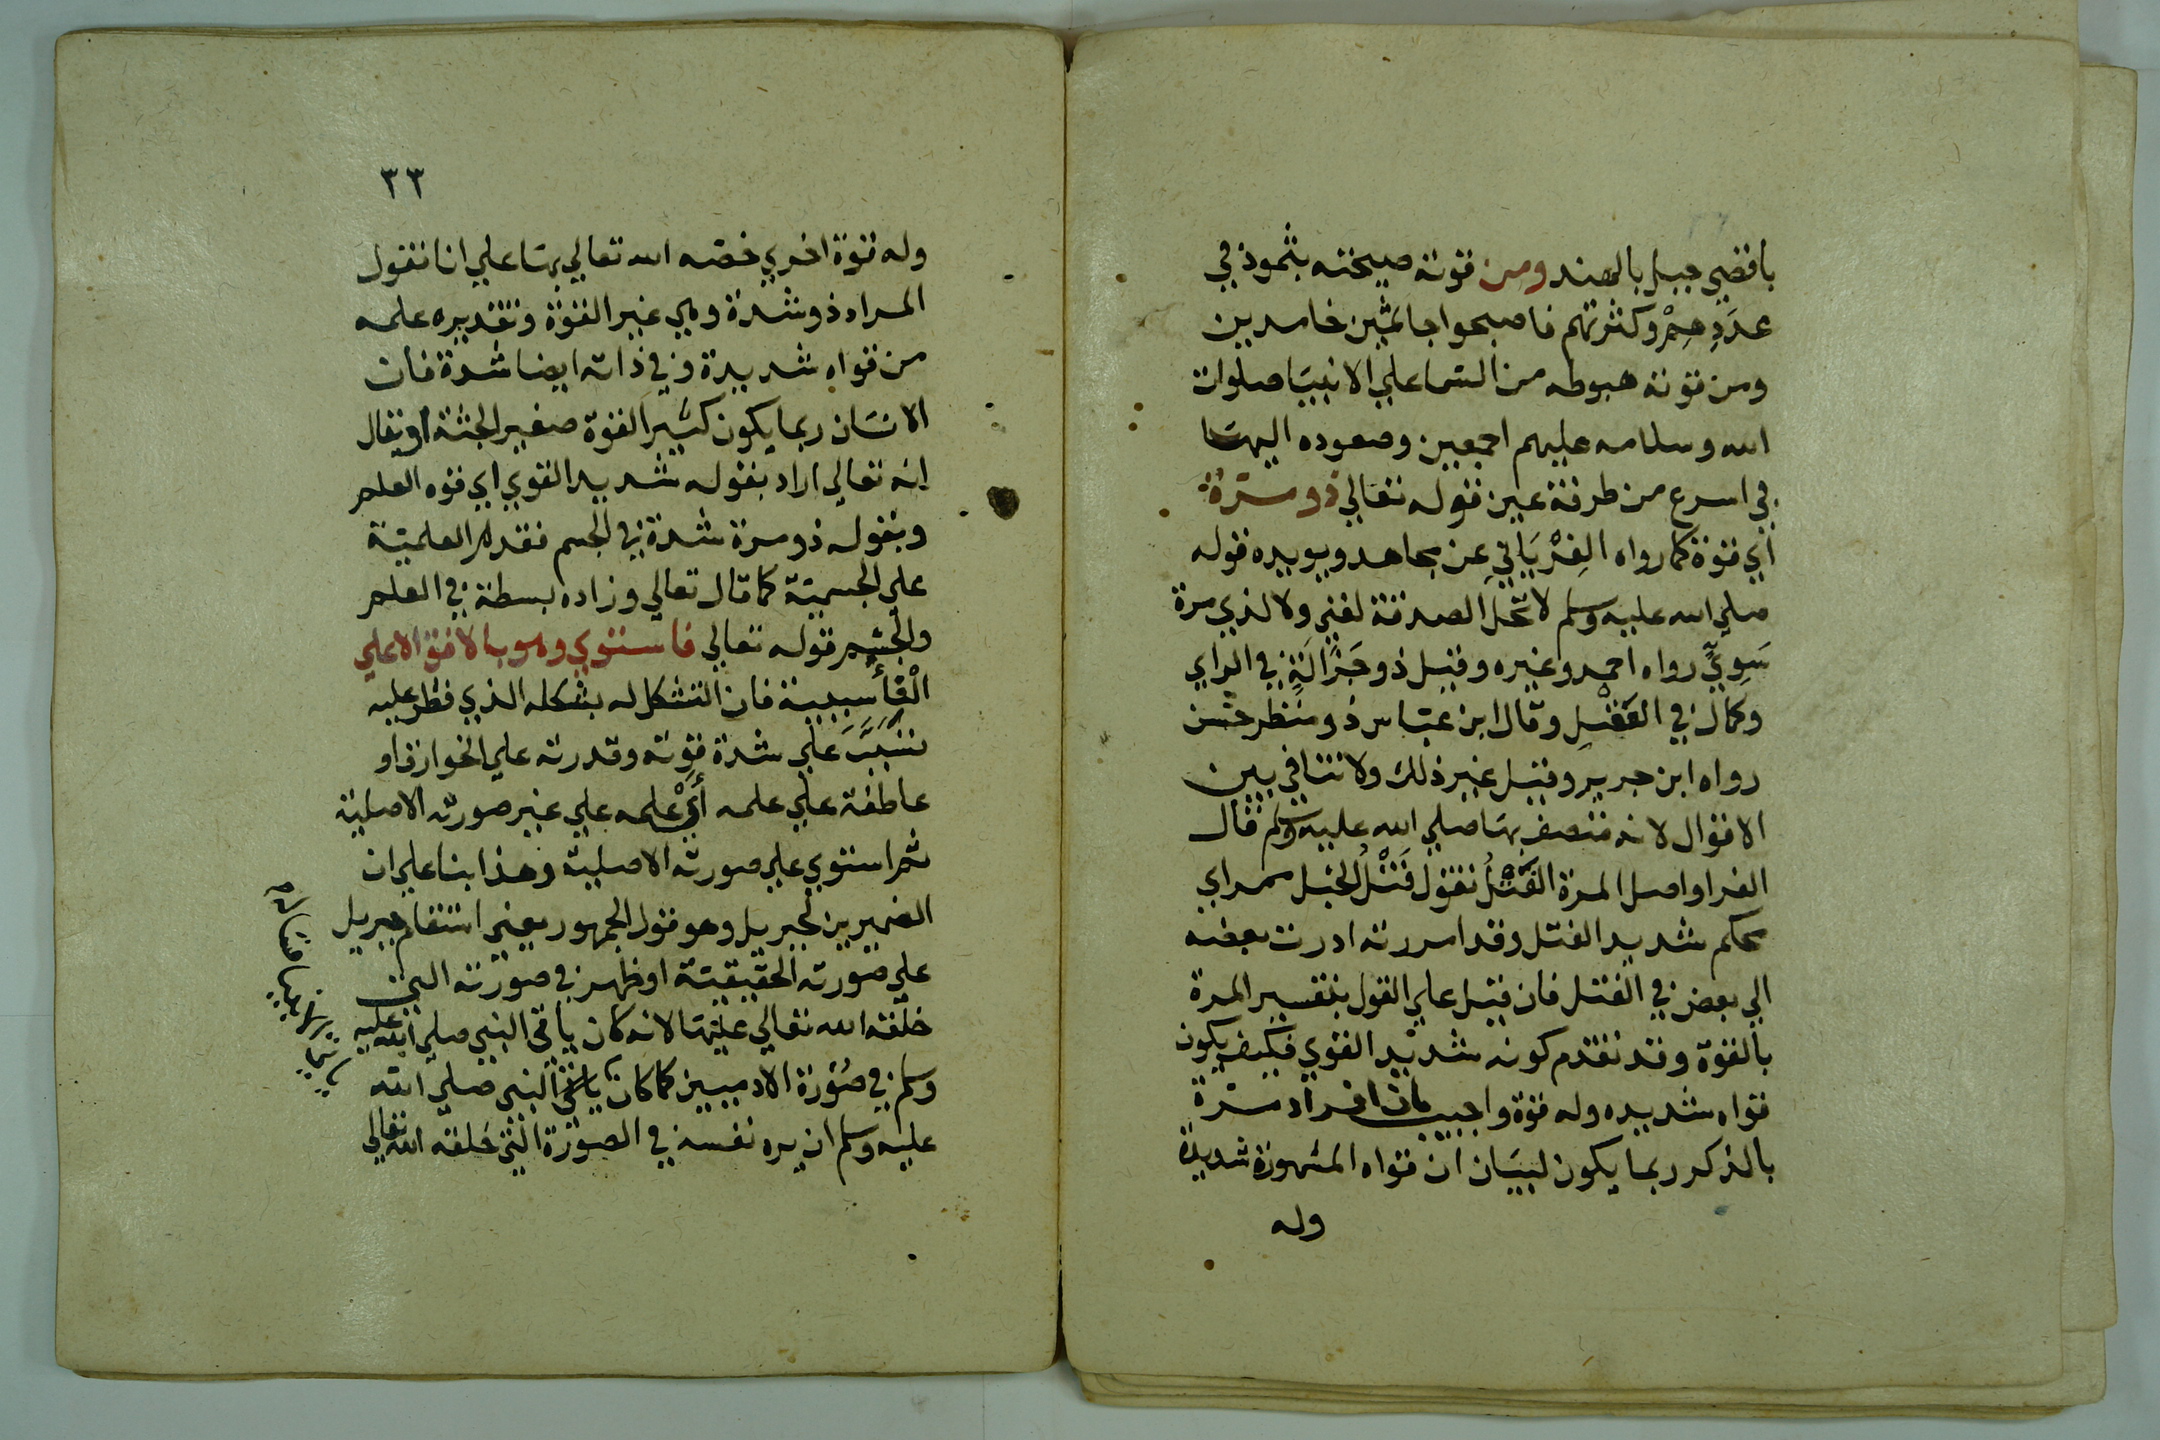 باقصي جبل بالهند ومن قوته صيحته بثمود في
عددهم وكثرتهم فاصبحوا جاثمين خامدين
ومن قوته هبوطه من السما علي الانبيا صلوات
الله وسلامه عليهم اجمعين وصعوده اليها
في اسرع من طرفة عين قوله تعالي ذو مرة
أي قوة كما رواه الفِرْيَابي عن مجاهد ويويده قوله
صلي الله عليه وسلم لا تحل الصدقة لغني ولا لذي مرة
سَوِيٍّ رواه احمد وغيره وقيل ذو جَزَالَةٍ في الراي
وكمال في العَقْلِ وقال ابن عباس ذو منظر حسن
رواه ابن جرير وقيل غير ذلك ولا تنافي بين
الاقوال لانه متصف بها صلي الله عليه وسلم قال
الفرا واصل المرة الفَتْلُ تقول فَتْلُ الحبل ممر اي
محكم شديد الفتل وقد امررته ادرت بعضه
الي بعض في الفتل فان قيل علي القول بتفسير المرة
بالقوة وقد تقدم كونه شديد القوي فكيف يكون
قواه شديده وله قوة واجيب بان افراد مرة
بالذكر ربما يكون لبيان ان قواه المشهورة شديدة
وله
٣٣
وله قوة اخري خصه الله تعالي بها علي انا نقول
المراد ذو شدة وهي غير القوة وتقديره علمه
من قواه شديدة وفي ذاته ايضا شدة فان
الانسان ربما يكون كبير القوة صغير الجثة او يقال
انه تعالي اراد بقوله شديد القوي اي قوه العلم
وبقوله ذو مرة شدة في الجسم فقدم العلمية
علي الجسمية كما قال تعالي وزاده بسطة في العلم
والجسم قوله تعالي فاستوي وهو بالافق الاعلي
الْفَأ سببية فان التشكل له بشكله الذي فطر عليه
تسبب علي شدة قوته وقدرته علي الخوارق او
عاطفة علي علمه أيْ علمه علي غير صورته الاصلية
ثم استوي علي صورته الاصلية وهذا بنا علي ان
الضميرين لجبريل وهو قول الجمهور يعني استقام جبريل
علي صورته الحقيقية او ظهر في صورته التي
خلقه الله تعالي عليها لانه كان ياتي النبي صلي الله عليه
وسلم في صورة الادميين كما كان ياتي النبي صلي الله
عليه وسلم ان يره نفسه في الصورة التي خلقه الله تعالي